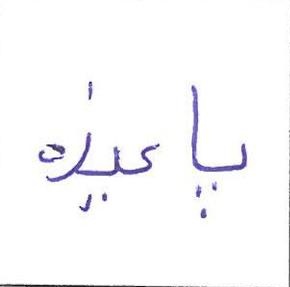 پاعیزه